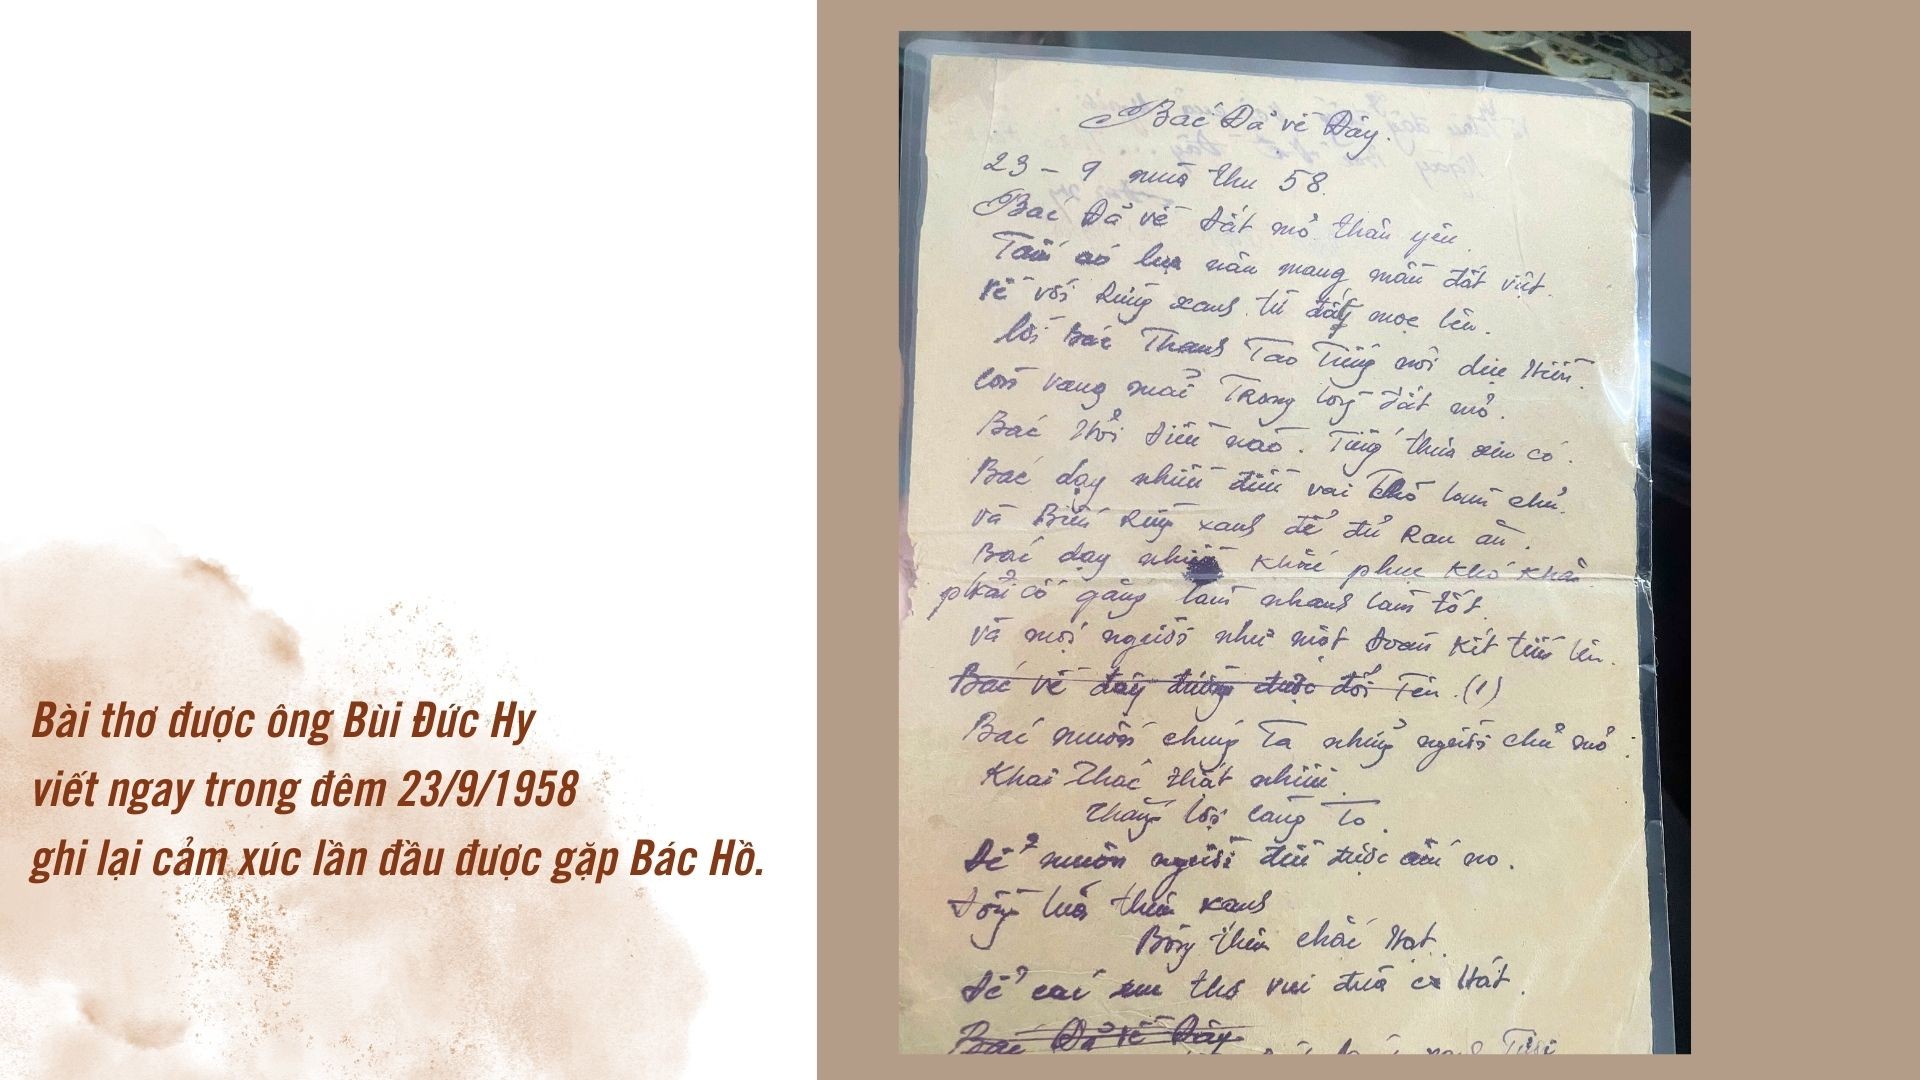 Bài thơ được ông Bùi Đức Hy
viết ngay trong đêm 23/9/1958
ghi lại cảm xúc lần đầu được gặp Bác Hồ.
Bác Đã về Đây.
23 - 9 mùa thu 58.
Bác Đã về Đất mỏ thân yên.
Tấm áo lụa nâu mang mầu đất việt.
Về với Rừng xanh từ đấy mọc lên.
lời Bác Thanh Tao Tiếng nói dịu Hiền.
còn vang mãi Trong lòng Đất mỏ.
Bác Hỏi điều nào. Tiếng thưa xin có.
Bác dạy nhiều điều vai làm chủ.
và Biến Rừng xanh để đủ Rau ăn.
Bác dạy nhiều khắc phục khó khăn
phải cố gắng làm nhanh làm tốt.
và mọi người như một Đoàn kết tiến lên.
Bác về đây đường được đổi Tên. (1)
Bác muốn chúng Ta những người chủ mỏ:
Khai Thác thật nhiều
Thắng lợi càng To.
Để muôn người đều được ấm no.
Đồng lúa thêm xanh
Bông thêm chắc Hạt.
Để các em thơ vui đùa ca Hát.
Bác Đã về Đây